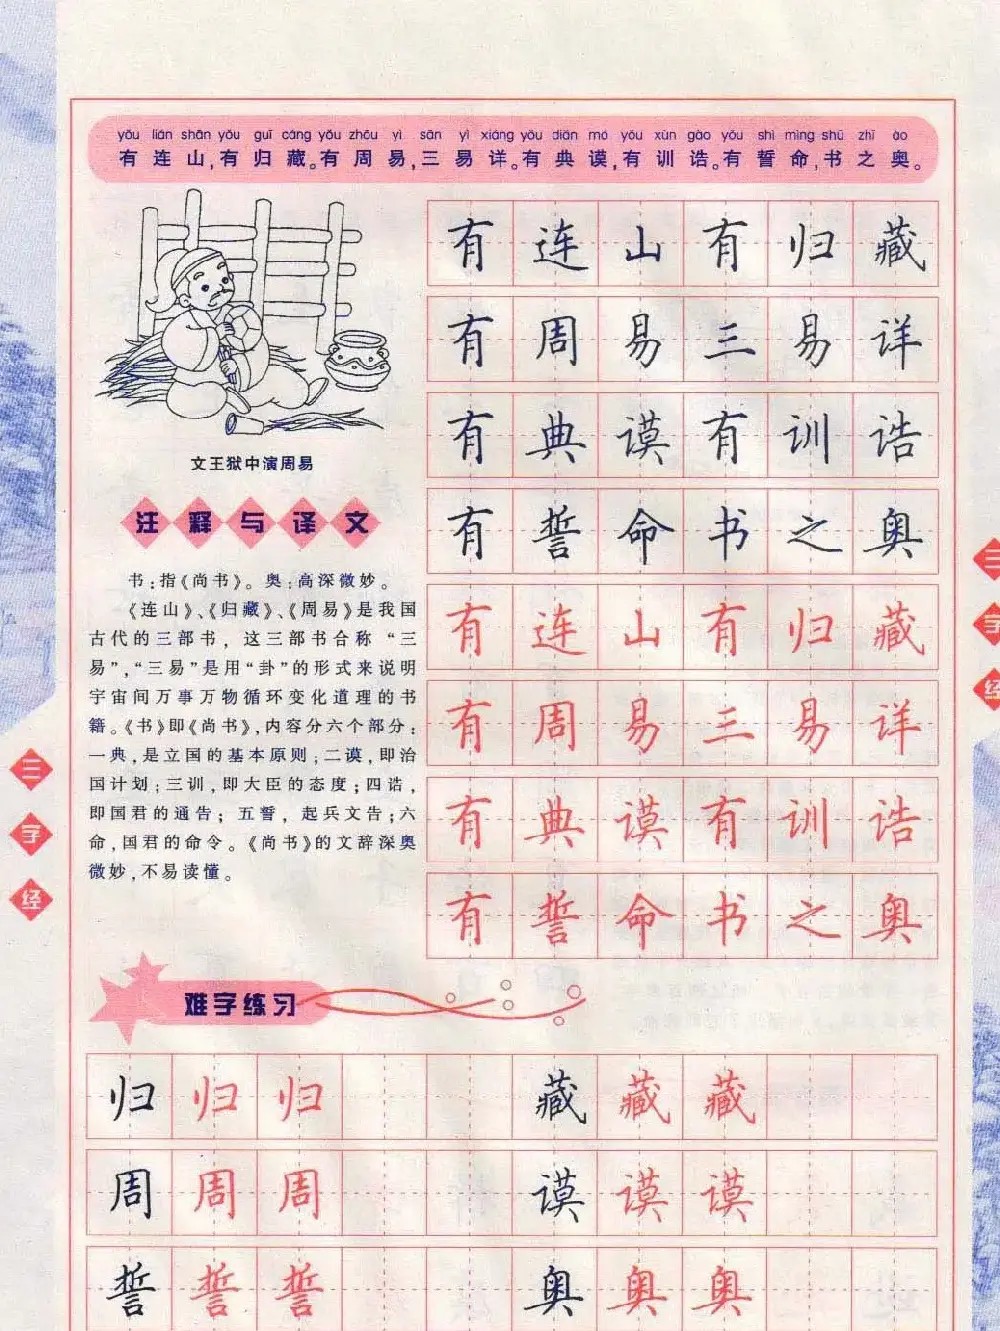 yǒu lián shān yǒu guī cáng yǒu zhōu yì sān yì xiáng yǒu diǎn mó yǒu xùn gào yǒu shì mìng shū zhī ào
有连山,有归藏。有周易,三易详。有典谟,有训诰。有誓命,书之奥。
文王狱中演周易
注释与译文
书:指《尚书》。奥:高深微妙。
《连山》、《归藏》、《周易》是我国
古代的三部书，这三部书合称“三
易”,“三易”是用“卦”的形式来说明
宇宙间万事万物循环变化道理的书
籍。《书》即《尚书》,内容分六个部分:
一典,是立国的基本原则;二谟,即治
国计划;三训,即大臣的态度;四诰,
即国君的通告; 五誓，起兵文告;六
命,国君的命令。《尚书》的文辞深奥
微妙,不易读懂。
有连山有归藏
有周易三易详
有典谟有训诰
有誓命书之奥
有连山有归藏
有周易三易详
有典谟有训诰
有誓命书之奥
难字练习
归归归 藏藏藏
周周周 谟谟谟
誓誓誓 奥奥奥
三字经
三字经